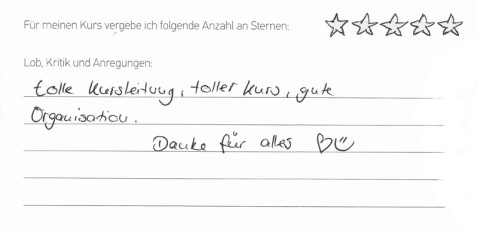 Für meinen Kurs vergebe ich folgende Anzahl an Sternen:
Lob, Kritik und Anregungen:
tolle Kursleitung, toller Kurs, gute
Organisation.
Danke für alles